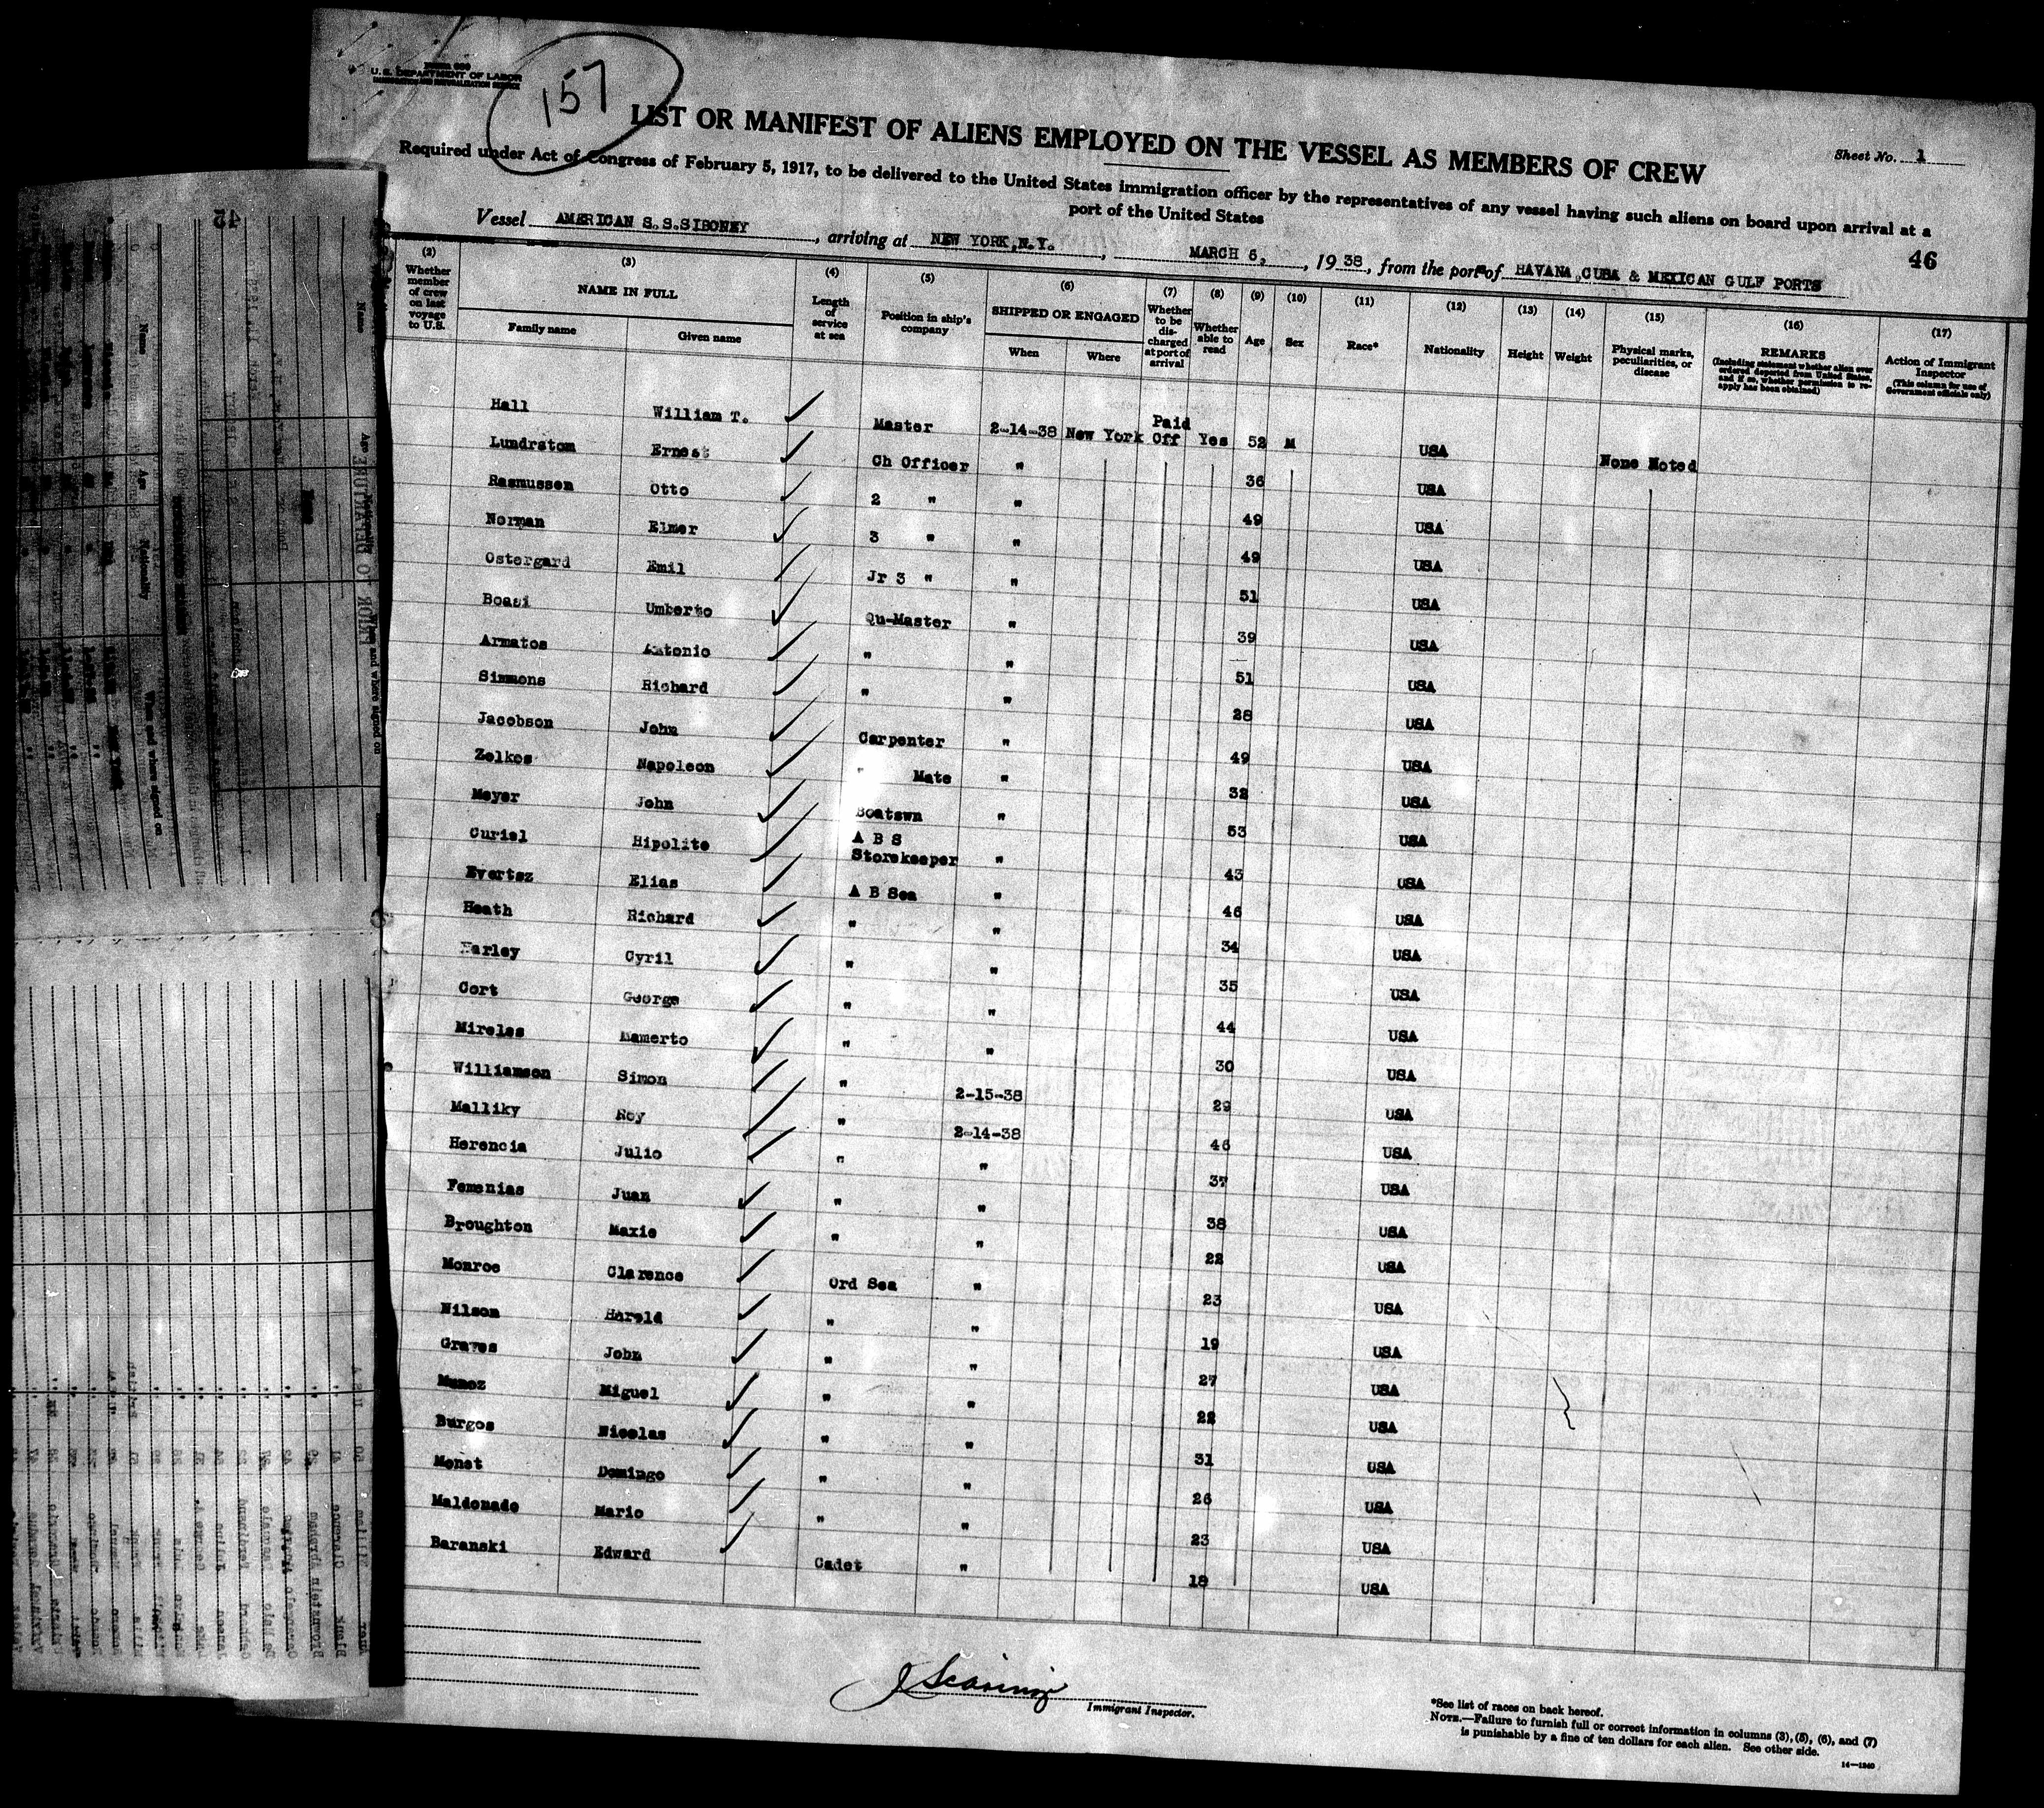 157
U. S. DEPARTMENT OF LABOR
IMMIGRATION AND NATURALIZATION SERVICE
LIST OR MANIFEST OF ALIENS EMPLOYED ON THE VESSEL AS MEMBERS OF CREW
Sheet No. 1
Required under Act of Congress of February 5, 1917, to be delivered to the United States immigration officer by the representatives of any vessel having such aliens on board upon arrival at a
port of the United States
46
Vessel AMERICAN S.S.SIBONEY, arriving at NEW YORK,N.Y., MARCH 6, 1938, from the port of HAVANA,CUBA & MEXICAN GULF PORTS
(2) Whether member of crew on last voyage to U.S.
(3) NAME IN FULL
Family name Given name
(4) Length of service at sea
(5) Position in ship's company
(6) SHIPPED OR ENGAGED
When Where
(7) Whether to be discharged at port of arrival
(8) Whether able to read
(9) Age
(10) Sex
(11) Race*
(12) Nationality
(13) Height
(14) Weight
(15) Physical marks, peculiarities, or disease
(16) REMARKS
(Including statement whether alien ever ordered deported from United States, and if so, whether permission to reapply has been obtained)
(17) Action of Immigrant Inspector
(This column for use of Government officials only)
Hall William T. Master 2-14-38 New York Paid Off Yes 52 M USA None Noted
Lundrstom Ernest Ch Officer " 36 USA
Rasmussen Otto 2 " " 49 USA
Norman Elmer 3 " " 49 USA
Ostergard Emil Jr 3 " " 51 USA
Boasi Umberto Qu-Master " 39 USA
Armatos Antonio " " 51 USA
Simmons Richard " " 28 USA
Jacobson John Carpenter " 49 USA
Zelkos Napoleon " Mate " 32 USA
Meyer John Boatswn " 53 USA
Curiel Hipolito A B S Storekeeper " 43 USA
Evertsz Elias A B Sea " 46 USA
Heath Richard " " 34 USA
Harley Cyril " " 35 USA
Cort George " " 44 USA
Mireles Mamerto " " 30 USA
Williamson Simon " 2-15-38 29 USA
Malliky Roy " 2-14-38 46 USA
Herencia Julio " " 37 USA
Femenias Juan " " 38 USA
Broughton Maxie " " 22 USA
Monroe Clarence Ord Sea " 23 USA
Nilson Harold " " 19 USA
Graves John " " 27 USA
Munoz Miguel " " 22 USA
Burgos Nicolas " " 31 USA
Monet Domingo " " 26 USA
Maldonado Mario " " 23 USA
Baranski Edward Cadet " 18 USA
Immigrant Inspector.
*See list of races on back hereof.
NOTE.—Failure to furnish full or correct information in columns (3), (5), (6), and (7)
is punishable by a fine of ten dollars for each alien. See other side.
14—1240